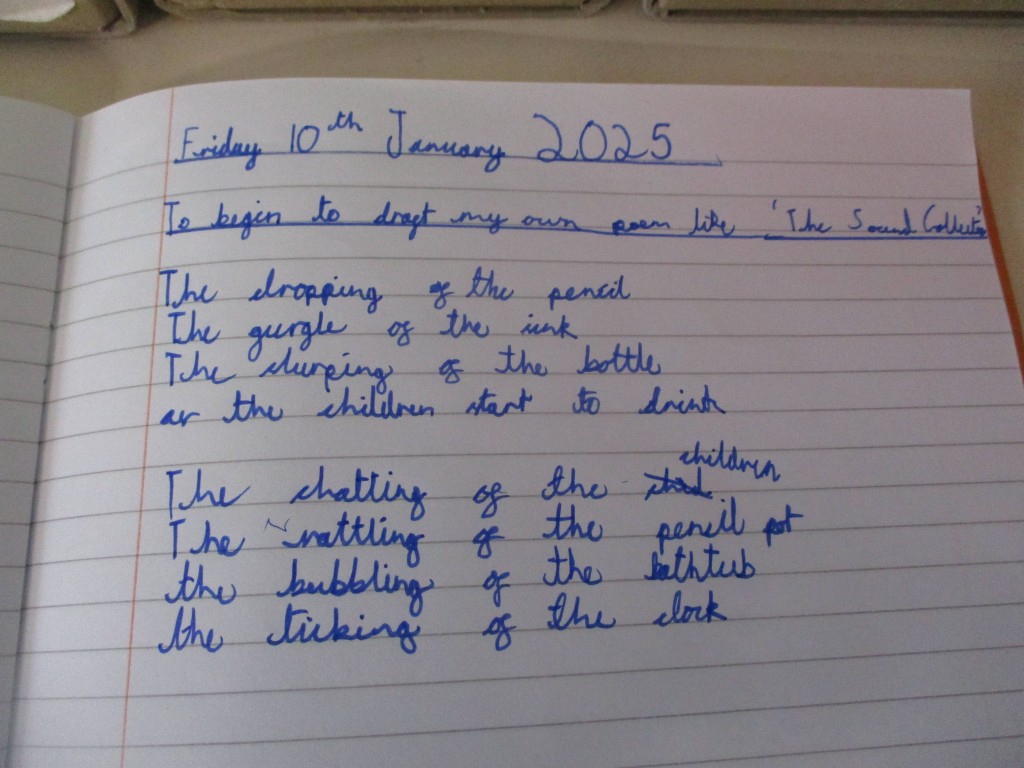 Friday 10th January 2025
To begin to draft my own poem like 'The Sound Collector'
The dropping of the pencil
The gurgle of the iink
The slurping of the bottle
as the children start to drink
The chatting of the children
The rattling of the pencil pot
the bubbling of the bathtub
the ticking of the clock